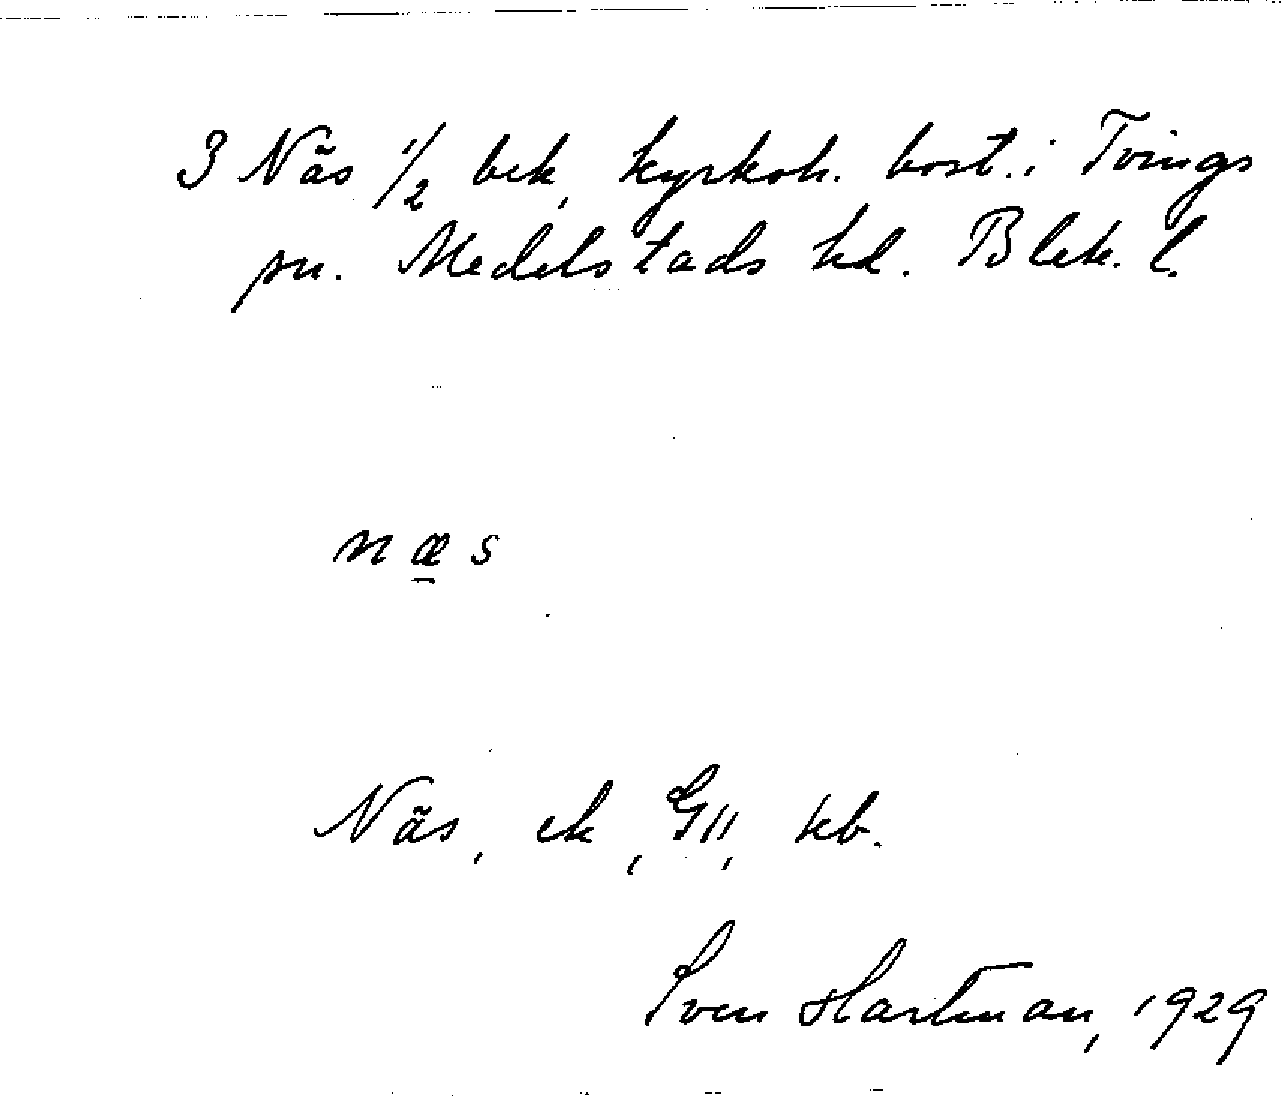 3 Näs 1/2 bek, kyrkoh. bost. i Tvings
sn. Medelstads hd. Blek. l.
n æ s
Näs, ek, GII, kb.
Sven Hartman, 1929